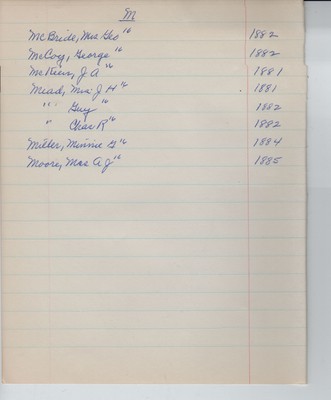 M
McBride, Mrs Geo "
1882
McCoy, George "
1882
McKeen, J A "
1881
Mead, Mrs J H "
1881
" " Guy "
1882
" Chas R "
1882
Miller, Minnie G "
1884
Moore, Mrs A J "
1885